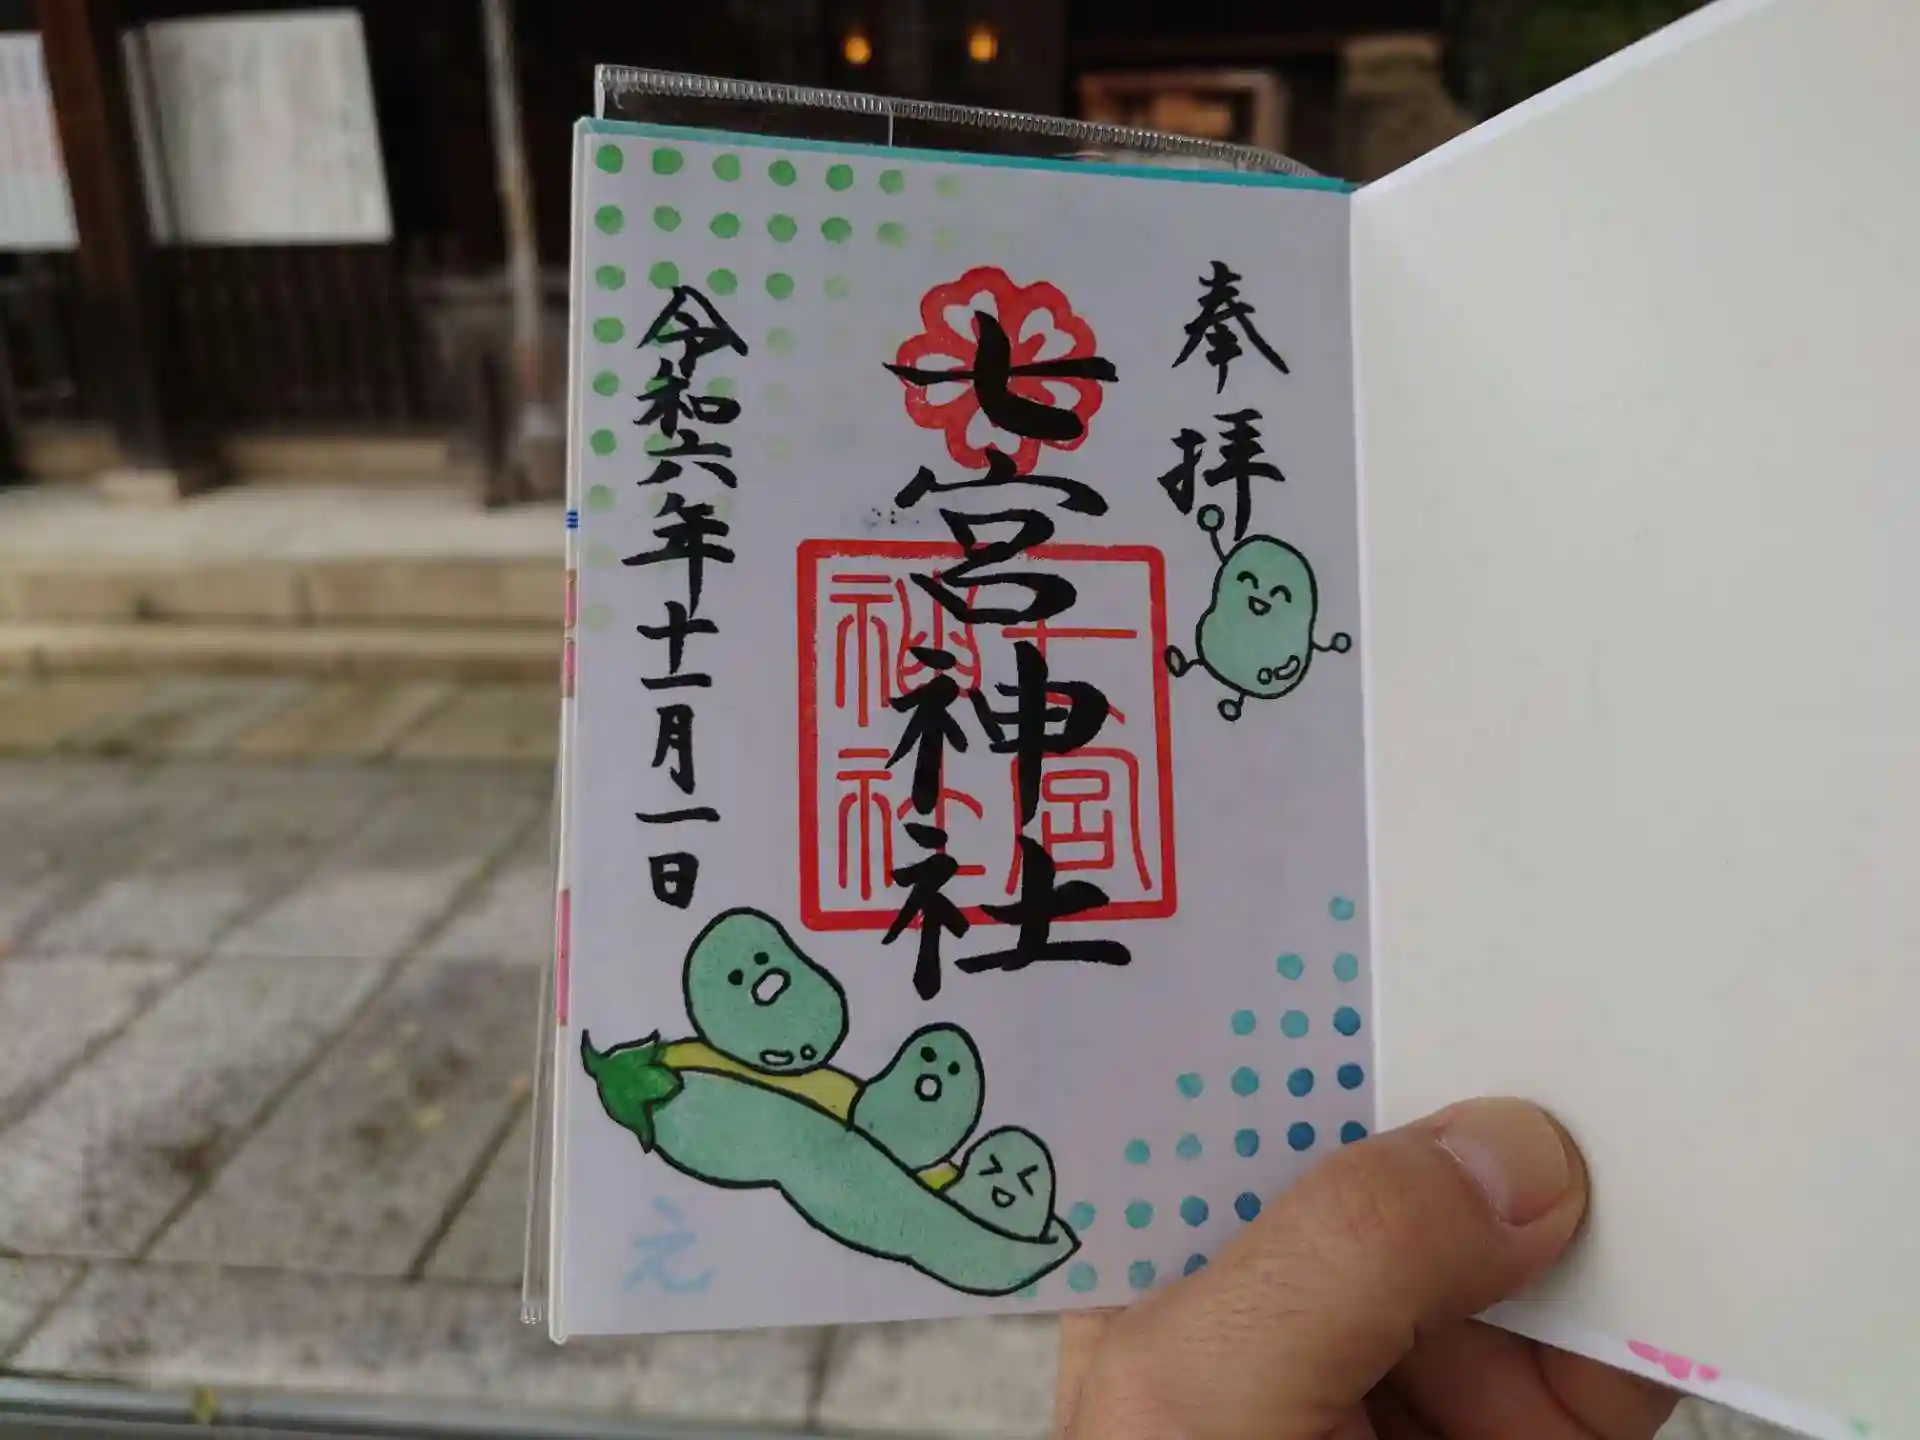 奉拝
七宮神社
七宮
神社
令和六年十一月一日
元